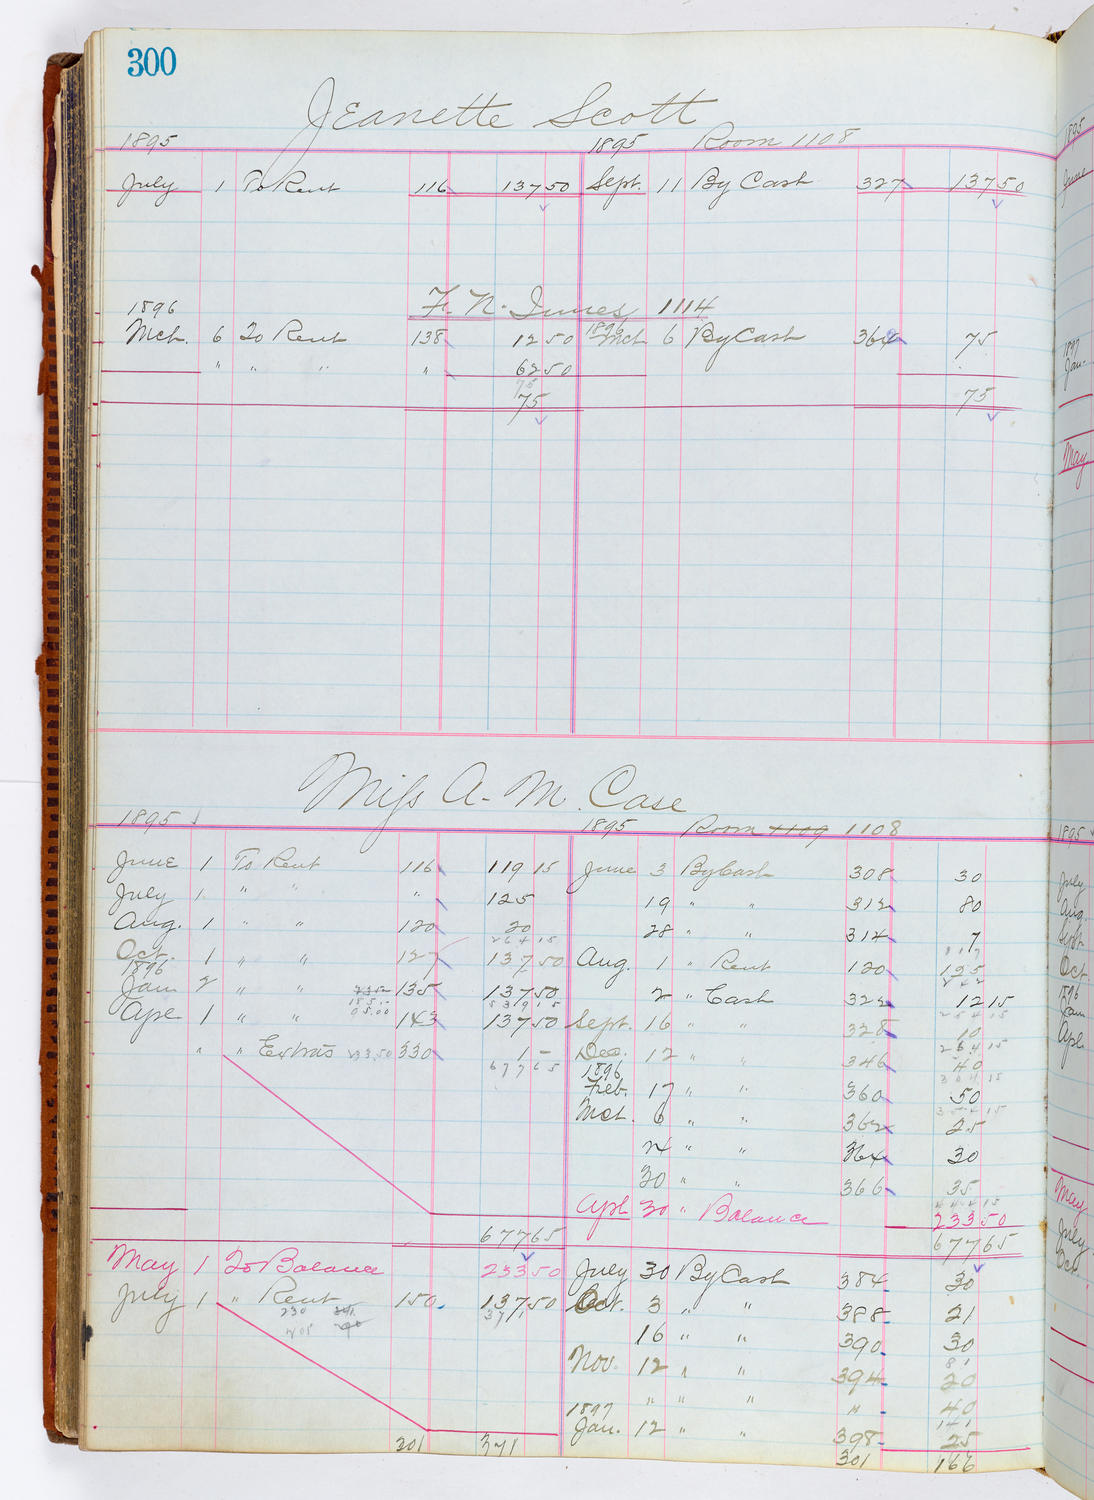 300
Jeanette Scott
1895 1895 Room 1108
July 1 To Rent 116 137 50 Sept. 11 By Cash 327 137 50
1896 F. N. Innes 1114
Mch. 6 To Rent 138 12 50 1896 Mch 6 By Cash 364 75
" " " " 62 50
75
75 75
Miss A. M. Case
1895 1895 Room 1109 1108
June 1 To Rent 116 119 15 June 3 By Cash 308 30
July 1 " " " 125 19 " " 312 80
Aug. 1 " " 120 20 28 " " 314 7
264 15
Oct. 1 " " 127 137 50 Aug. 1 " Rent 120 125
1896
Jan 2 " " 135 137 50 2 " Cash 322 12 15
Ape 1 " " 143 137 50 Sept. 16 " " 328 10
" " Extras 233.50 330 1 – Dec. 12 " " 346 40
677 65 1896
Feb. 17 " " 360 50
Mch. 6 " " 362 25
24 " " 364 30
30 " " 366 35
Apl 30 " Balance 233 50
677 65 677 65
May 1 To Balance 233 50 July 30 By Cash 384 30
July 1 " Rent 150 137 50 Oct. 3 " " 388 21
230 371
16 " " 390 30
Nov. 12 " " 394 20
" " " " 40
1897
Jan. 12 " " 398 25
301 371 301 166
1895
July
Aug.
Sept
Oct
1896
Jan
Apl
May
July
Oct.
1895
June
1897
Jan.
May